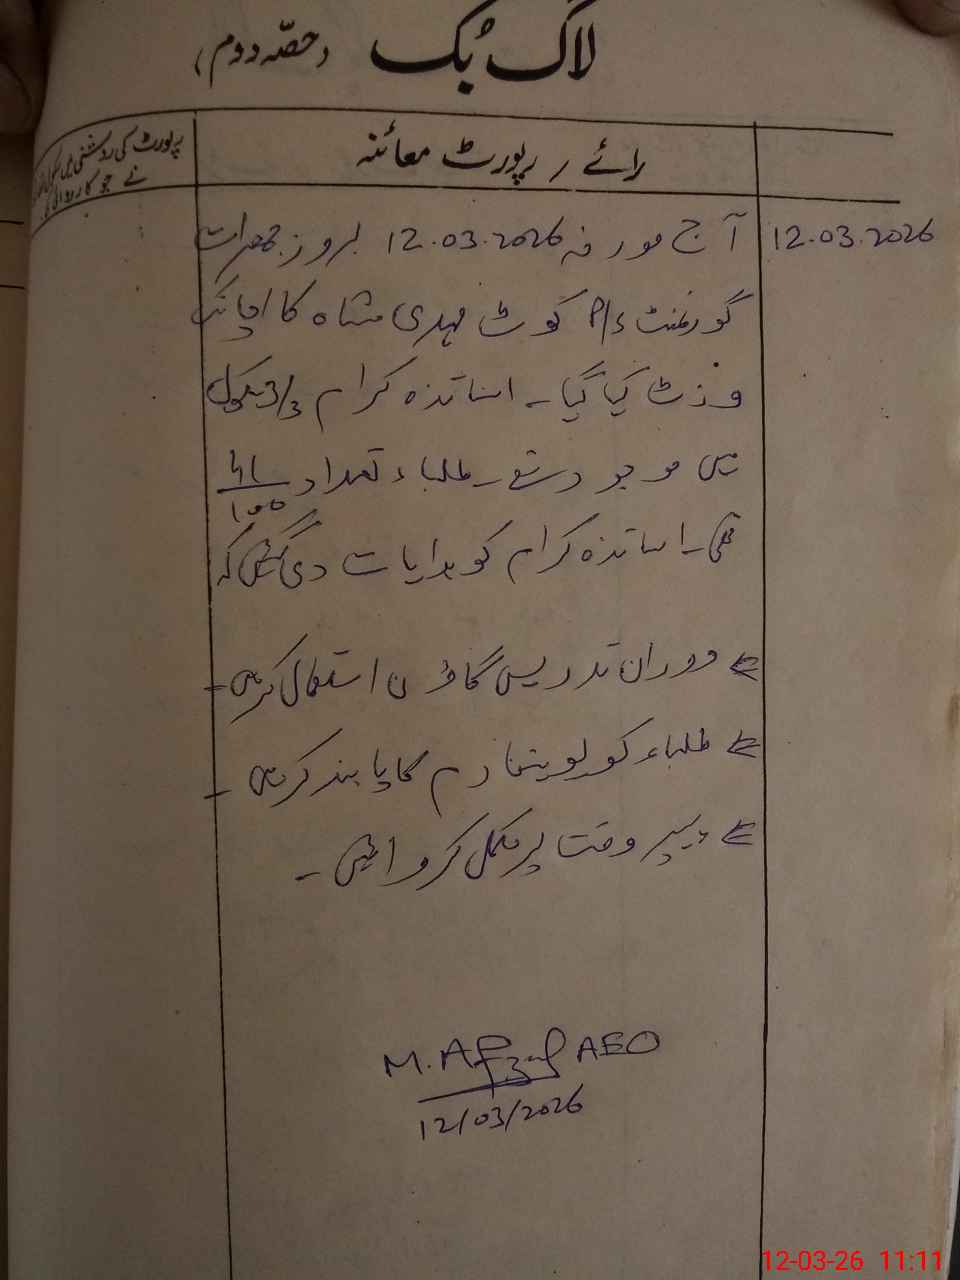 لاگ بُک (حصّہ دوم)
رائے / رپورٹ معائنہ
رپورٹ کی روشنی میں سکول
نے جو کارروائی کی
12.03.2026
آج مورخہ 12.03.2026 بروز جمعرات
گورنمنٹ P/S کوٹ مہدی شاہ کا اچانک
وزٹ کیا گیا۔ اساتذہ کرام 3/3 سکول
میں موجود تھے۔ طلباء تعداد
تھی۔ اساتذہ کرام کو ہدایات دی گئیں کہ
⇐ دوران تدریس گاؤن استعمال کریں۔
⇐ طلباء کو یونیفارم کا پابند کریں۔
⇐ پیپر وقت پر مکمل کروائیں۔
M. Afzal AEO
12/03/2026
12-03-26 11:11